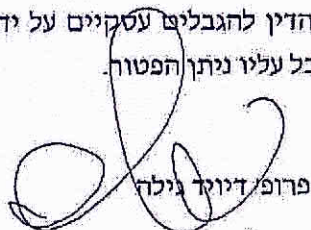 הדין להגבלים עסקיים על יד
כל עליו ניתן הפטור.
פרופ' דיויד גילה